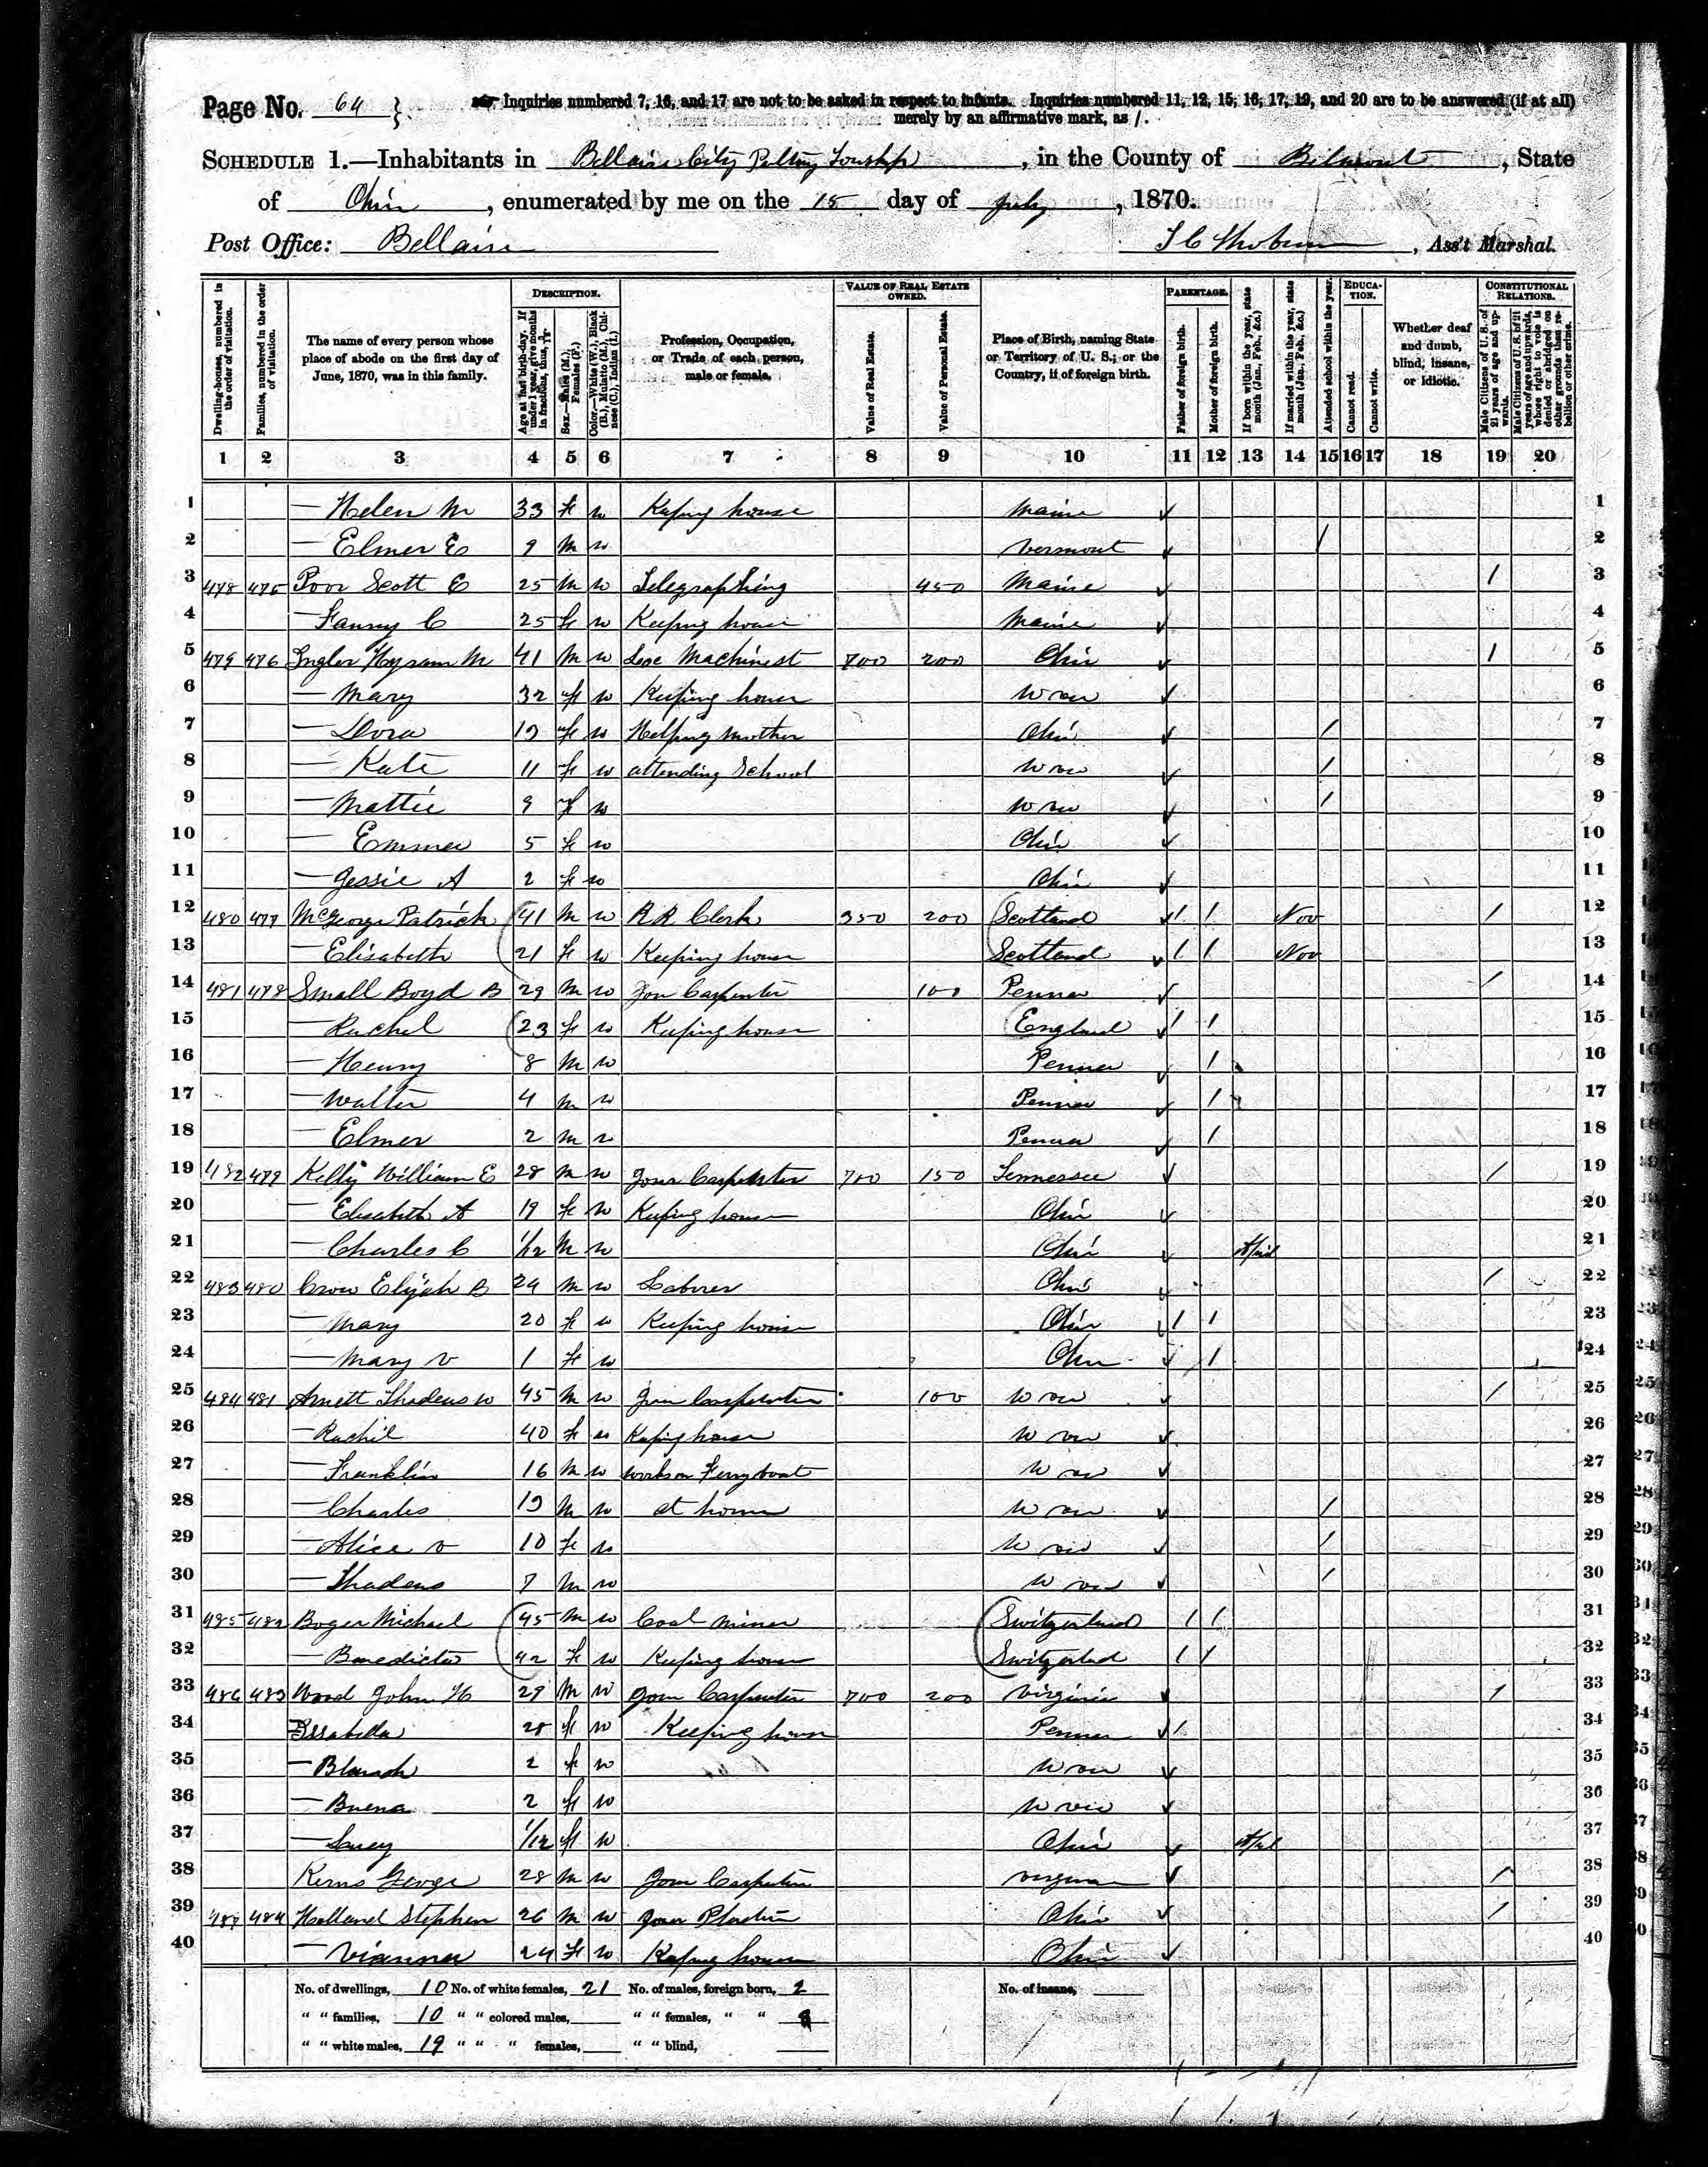 Page No. 64
Inquiries numbered 7, 16, and 17 are not to be asked in respect to infants. Inquiries numbered 11, 12, 15, 16, 17, 19, and 20 are to be answered (if at all)
merely by an affirmative mark, as /.
SCHEDULE 1.—Inhabitants in Bellaire City Township, in the County of Belmont, State
of Ohio, enumerated by me on the 15 day of July, 1870.
Post Office: Bellaire
, Ass't Marshal.
Dwelling-houses, numbered in the order of visitation.
Families, numbered in the order of visitation.
The name of every person whose place of abode on the first day of June, 1870, was in this family.
DESCRIPTION.
Age at last birth-day. If under 1 year, give months in fractions, thus, 3/12
Sex.—Males (M.), Females (F.)
Color.—White (W.), Black (B.), Mulatto (M.), Chinese (C.), Indian (I.)
Profession, Occupation, or Trade of each person, male or female.
VALUE OF REAL ESTATE OWNED.
Value of Real Estate.
Value of Personal Estate.
Place of Birth, naming State or Territory of U. S.; or the Country, if of foreign birth.
PARENTAGE.
Father of foreign birth.
Mother of foreign birth.
If born within the year, state month (Jan., Feb., &c.)
If married within the year, state month (Jan., Feb., &c.)
Attended school within the year.
EDUCATION.
Cannot read.
Cannot write.
Whether deaf and dumb, blind, insane, or idiotic.
CONSTITUTIONAL RELATIONS.
Male Citizens of U. S. of 21 years of age and upwards.
Male Citizens of U. S. of 21 years of age and upwards, whose right to vote is denied or abridged on other grounds than rebellion or other crime.
1 2 3 4 5 6 7 8 9 10 11 12 13 14 15 16 17 18 19 20
1 — Helen M 33 F W Keeping house Maine 1
2 — Elmer E 9 M W Vermont / 2
3 478 475 Poor Scott E 25 M W Telegraphing 450 Maine / 3
4 — Fanny C 25 F W Keeping house Maine 4
5 479 476 Ingler Hyram M 41 M W Machinest 700 200 Ohio / 5
6 — Mary 32 F W Keeping house W va 6
7 — Dora 13 F W Helping mother Ohio / 7
8 — Kate 11 F W attending School W va / 8
9 — Mattie 9 F W W va / 9
10 — Emma 5 F W Ohio 10
11 — Jessie A 2 F W Ohio 11
12 480 477 McGeorge Patrick 41 M W R R Clerk 350 200 Scotland / / Nov / 12
13 — Elisabeth 21 F W Keeping house Scotland / / Nov 13
14 481 478 Small Boyd B 29 M W Jour Carpenter 100 Penna / 14
15 — Rachel 23 F W Keeping house England / / 15
16 — Henry 8 M W Penna / 16
17 — Walter 4 M W Penna / 17
18 — Elmer 2 M W Penna / 18
19 482 479 Kelly William E 28 M W Jour Carpenter 700 150 Tennessee / 19
20 — Elisabeth A 19 F W Keeping house Ohio 20
21 — Charles C 1/12 M W Ohio April 21
22 483 480 Crow Elijah B 24 M W Laborer Ohio / 22
23 — Mary 20 F W Keeping house Ohio / / 23
24 — Mary V 1 F W Ohio / 24
25 484 481 Arnett Thadeus W 45 M W Jour Carpenter 100 W va / 25
26 — Rachel 40 F W Keeping house W va 26
27 — Franklin 16 M W Works on Ferry boat W va 27
28 — Charles 13 M W at home W va / 28
29 — Alice V 10 F W W va / 29
30 — Thadeus 7 M W W va / 30
31 485 482 Boger Michael 45 M W Coal miner Switzerland / / 31
32 — Benedicta 42 F W Keeping house Switzerland / / 32
33 486 483 Wood John H 29 M W Jour Carpenter 700 200 Virginia / 33
34 Issabella 28 F W Keeping house Penna / 34
35 — Blanch 2 F W W va 35
36 — Buena 2 F W W va 36
37 — Lucy 1/12 F W Ohio April 37
38 Kerns George 28 M W Jour Carpenter Virginia / 38
39 487 484 Holland Stephen 26 M W Jour Plasterer Ohio / 39
40 — Vianna 24 F W Keeping house Ohio 40
No. of dwellings, 10 No. of white females, 21 No. of males, foreign born, 2 No. of insane,
" " families, 10 " " colored males, " " females, " "
" " white males, 19 " " " females, " " blind,